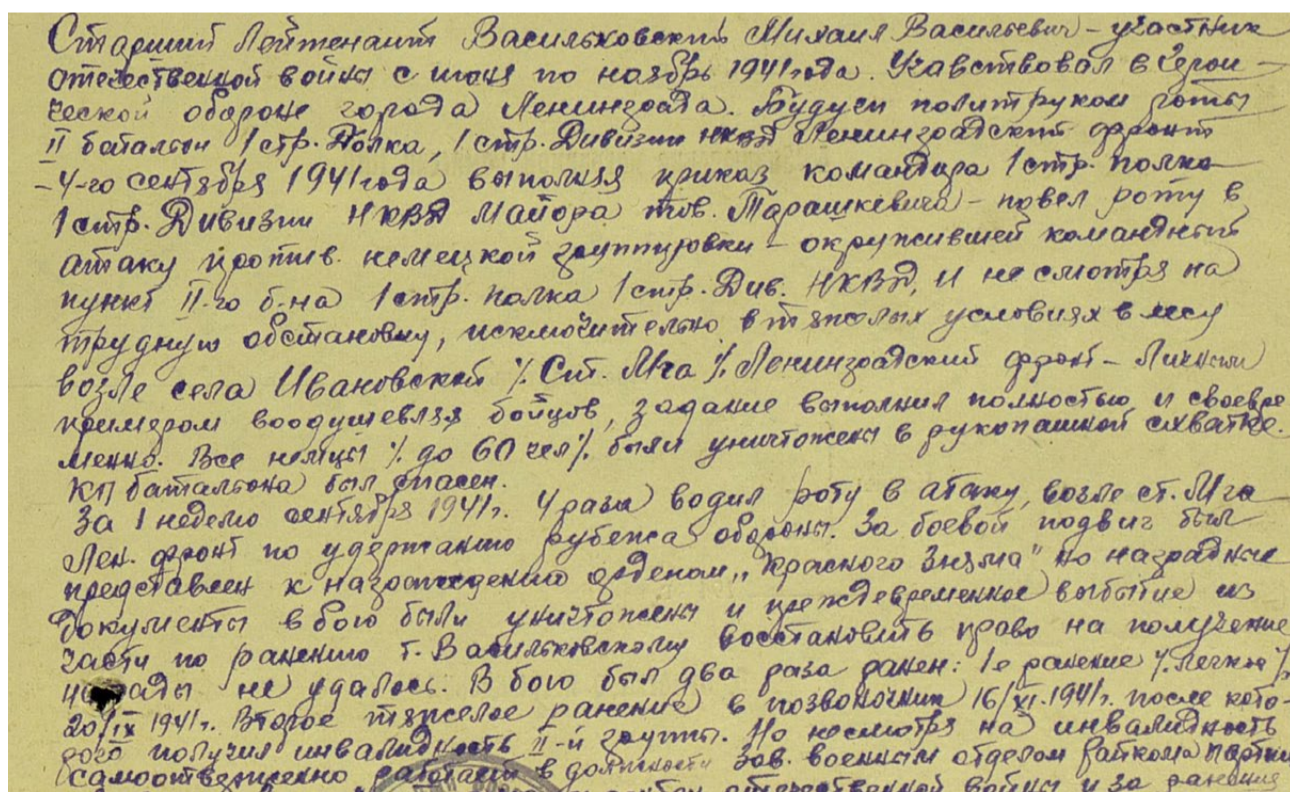 Старший Лейтенант Васильковский Михаил Васильевич – участник
отечественной войны с июня по ноябрь 1941 года. Учавствовал в герои-
ческой обороне города Ленинграда. Будучи политруком роты
II баталион 1 стр. Полка, 1 стр. Дивизии НКВД Ленинградский фронт
– 4-го сентября 1941 года выполняя приказ командира 1 стр. полка
1 стр. Дивизии НКВД Майора тов. Тарашкевича – повел роту в
атаку против немецкой группировки – окружившей командный
пункт II-го б-на 1 стр. полка 1 стр. Див. НКВД, и не смотря на
трудную обстановку, исключительно в тяжелых условиях в лесу
возле села Ивановской % Ст. Мга % Ленинградский фронт – Личным
примером воодушевляя бойцов, задание выполнил полностью и своевре
менно. Все немцы % до 60 чел % были уничтожены в рукопашной схватке.
КП баталиона был спасен.
За 1 неделю сентября 1941 г. 4 раза водил роту в атаку, возле ст. Мга
Лен. фронт по удержанию рубежа обороны. За боевой подвиг был
представлен к награждению орденом „Красного Знамя" но наградные
документы в бою были уничтожены и преждевременное выбытие из
части по ранению т. Васильковскому восстановить право на получение
награды не удалось. В бою был два раза ранен: 1е ранение % легкое %
20/IX 1941 г. Второе тяжелое ранение в позвоночник 16/XI-1941 г. после кото-
рого получил инвалидность II-й группы. Но несмотря на инвалидность
самоотверженно работает в должности зав. военным отделом райкома партии
отечественной войны и за ранения